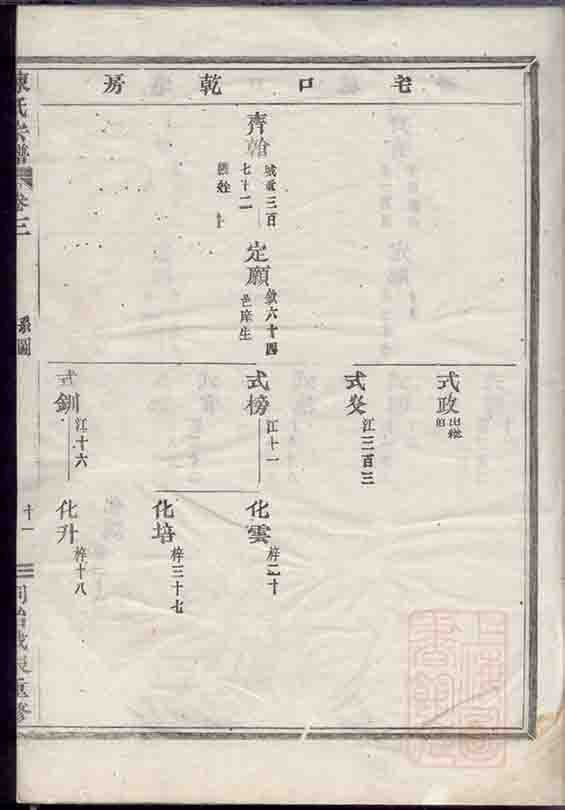 宅口乾房
齊翰
城重三百
七十二
定願
敘六十四
邑庠生
式政
出繼
式炎
江三百三
式榜
江十一
式釧
江十六
化雲
梓二十
化培
梓三十七
化升
梓十八
陳氏宗譜
卷三
系圖
十一
同治戊辰重修